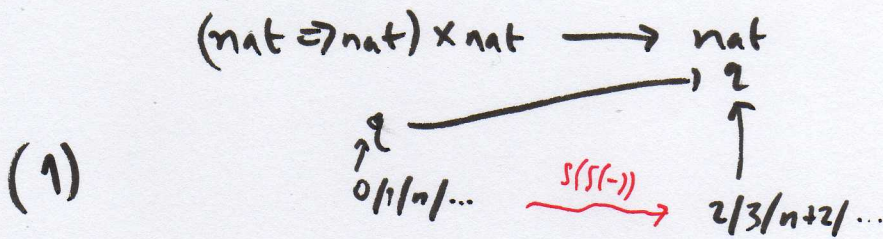 (nat => nat) × nat → nat
q
q
(1)
0/1/n/... S(S(-)) 2/3/n+2/...